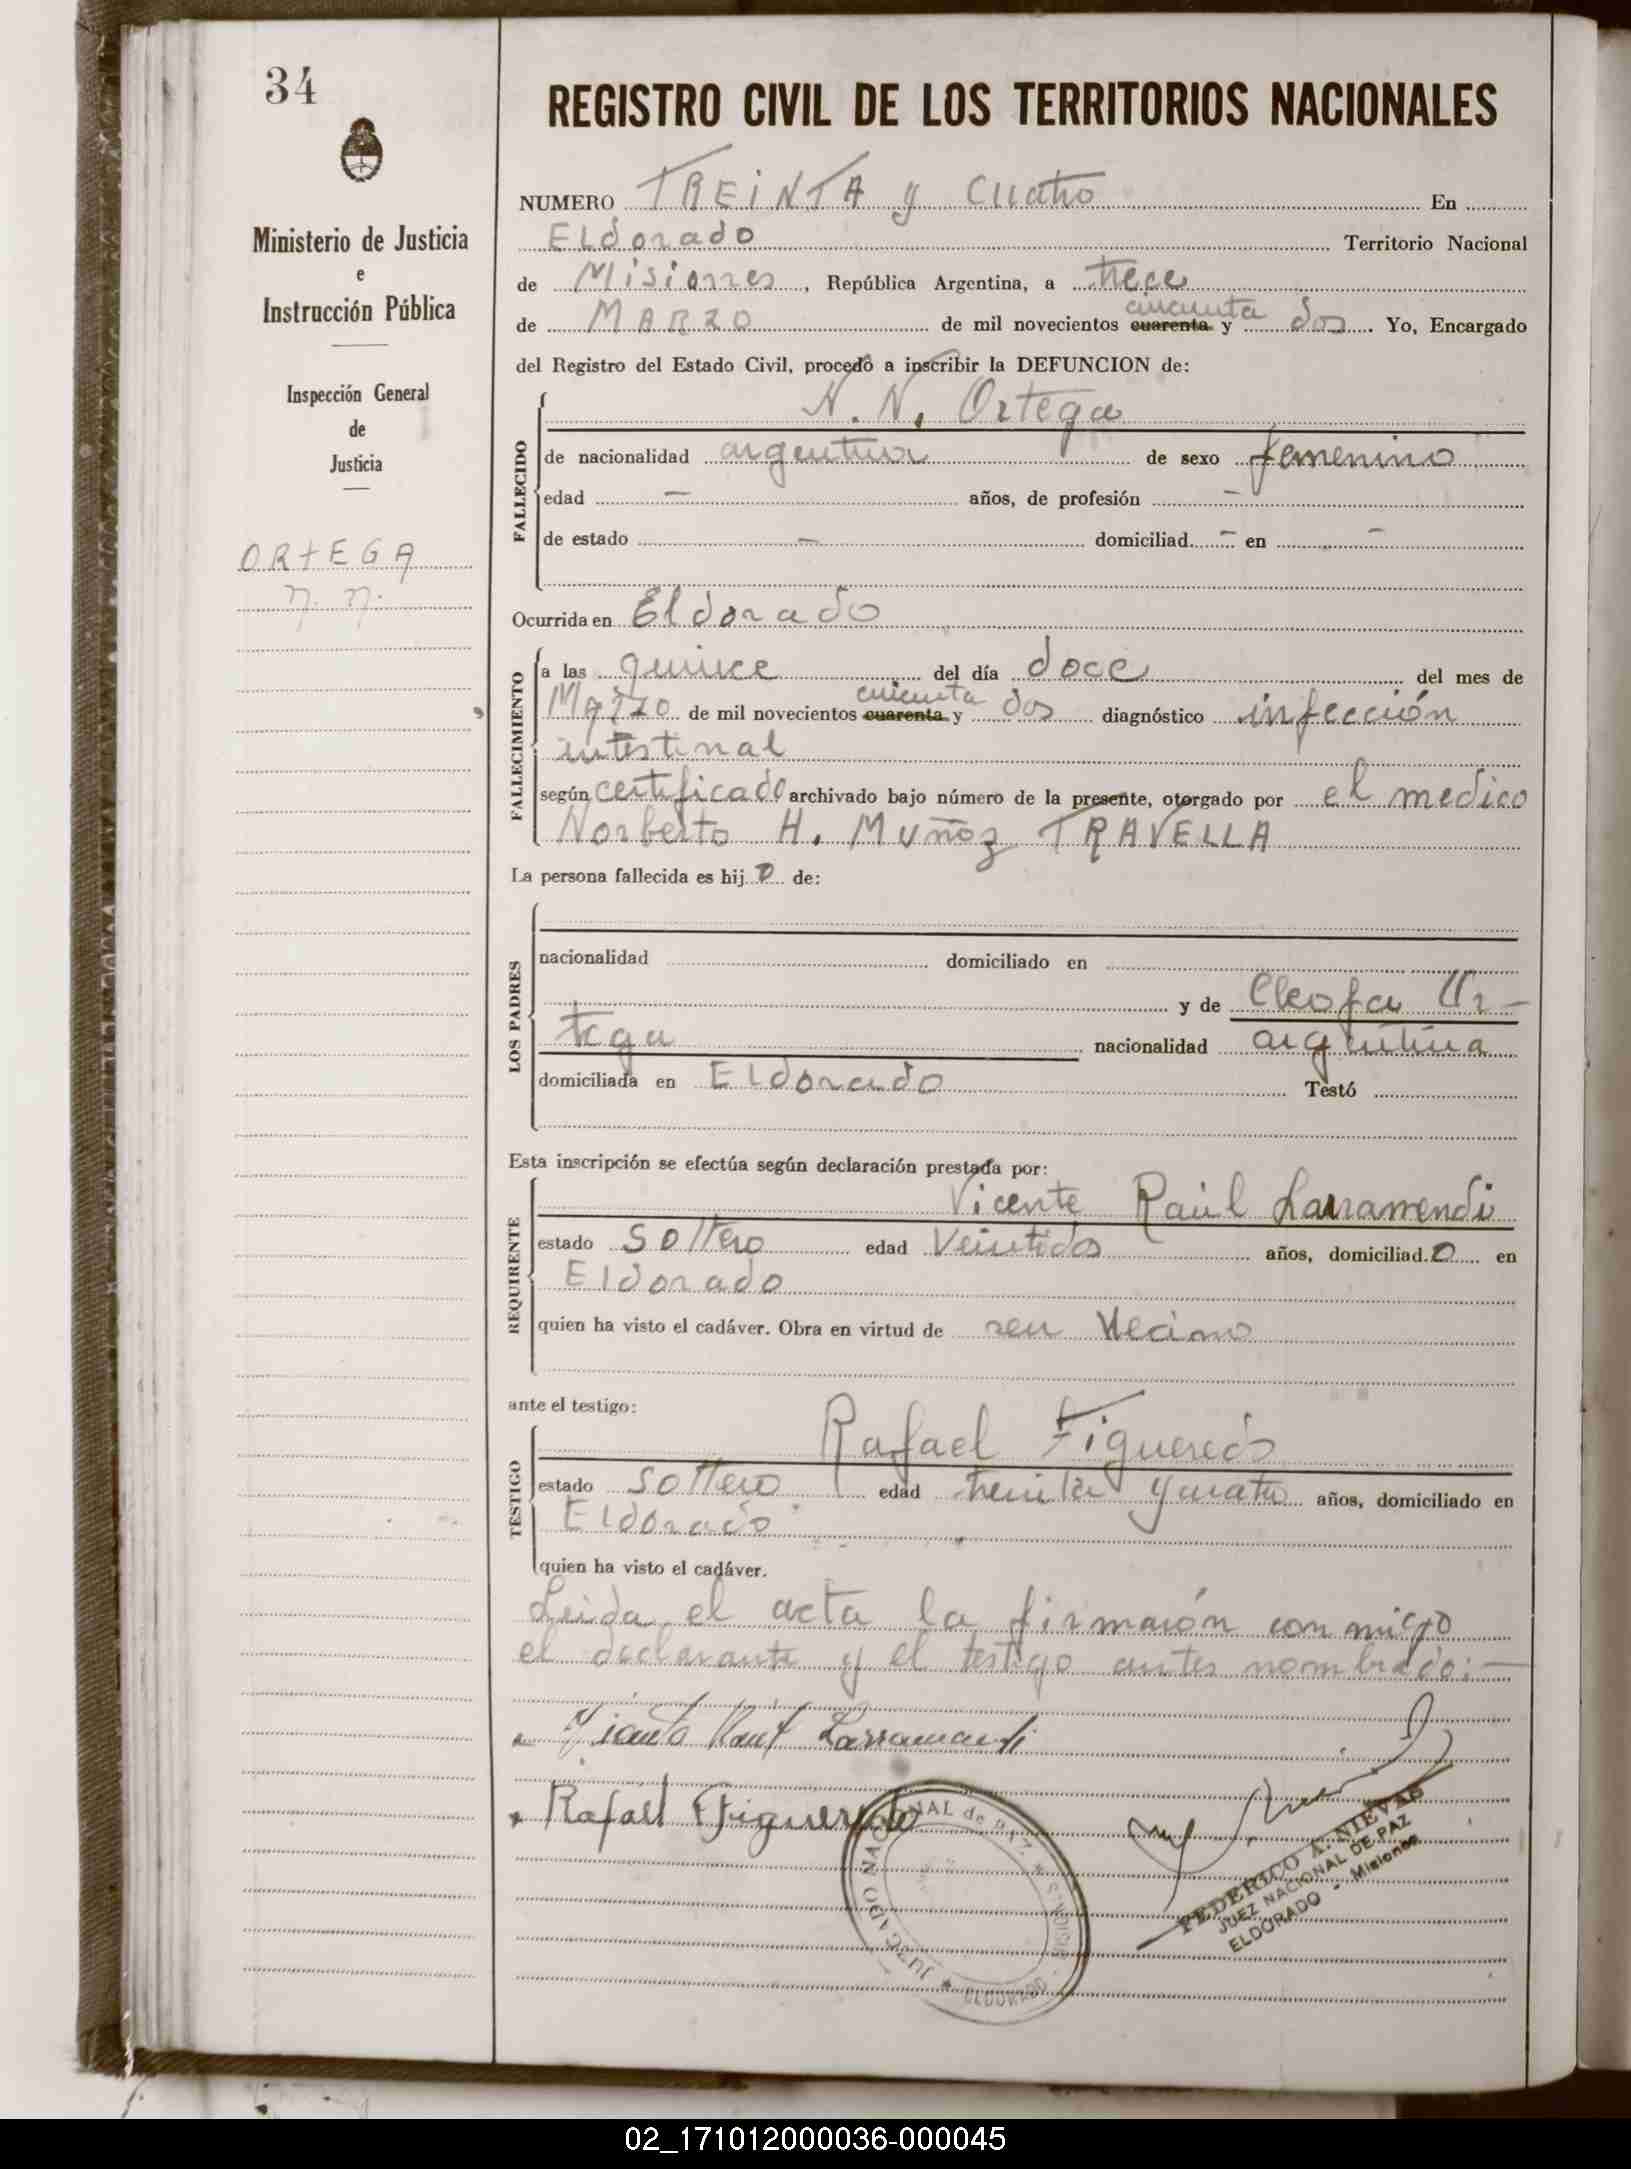 34
REGISTRO CIVIL DE LOS TERRITORIOS NACIONALES
Ministerio de Justicia
e
Instrucción Pública
Inspección General
de
Justicia
ORTEGA
N. N.
NUMERO TREINTA y Cuatro En
Eldorado Territorio Nacional
de Misiones, República Argentina, a trece
de MARZO de mil novecientos cuarenta cincuenta y dos. Yo, Encargado
del Registro del Estado Civil, procedo a inscribir la DEFUNCION de:
FALLECIDO
N. N. Ortega
de nacionalidad argentina de sexo femenino
edad — años, de profesión —
de estado — domiciliad — en —
Ocurrida en Eldorado
FALLECIMIENTO
a las quince del día doce del mes de
Marzo de mil novecientos cuarenta cincuenta y dos diagnóstico infección
intestinal
según certificado archivado bajo número de la presente, otorgado por el medico
Norberto H. Muñoz TRAVELLA
La persona fallecida es hijo de:
LOS PADRES
nacionalidad domiciliado en
y de Cleofa Or-
tega nacionalidad argentina
domiciliada en Eldorado Testó
Esta inscripción se efectúa según declaración prestada por:
REQUIRENTE
Vicente Raúl Larramendi
estado soltero edad Veintidos años, domiciliado en
Eldorado
quien ha visto el cadáver. Obra en virtud de ser vecino
ante el testigo:
TESTIGO
Rafael Figueredo
estado soltero edad treinta y cuatro años, domiciliado en
Eldorado
quien ha visto el cadáver.
Leida el acta la firmarón con migo
el declarante y el testigo antes nombrado:—
Vicente Raul Larramendi
Rafael Figueredo
JUZGADO NACIONAL de PAZ
MISIONES
ELDORADO
FEDERICO A. NIEVAS
JUEZ NACIONAL DE PAZ
ELDORADO - Misiones
02_171012000036-000045